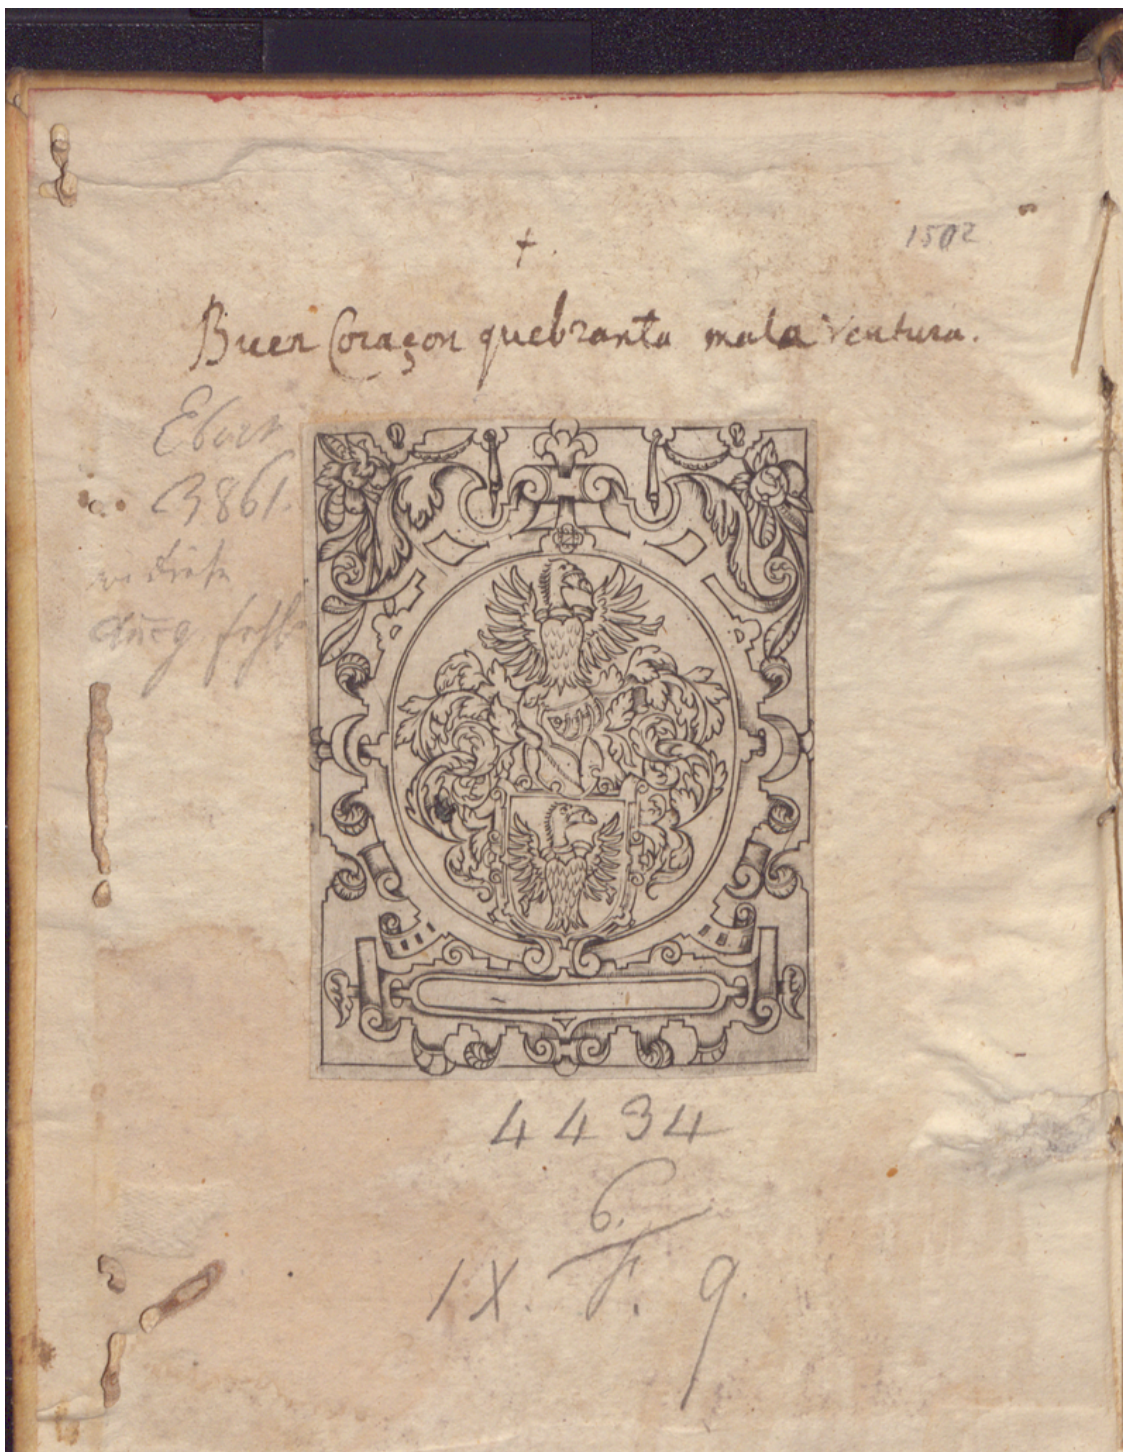 1502
+.
Buen Coraçon quebranta mala ventura.
Ebert
3861.
diese
fehlt
4434
6.
IX. F. 9.